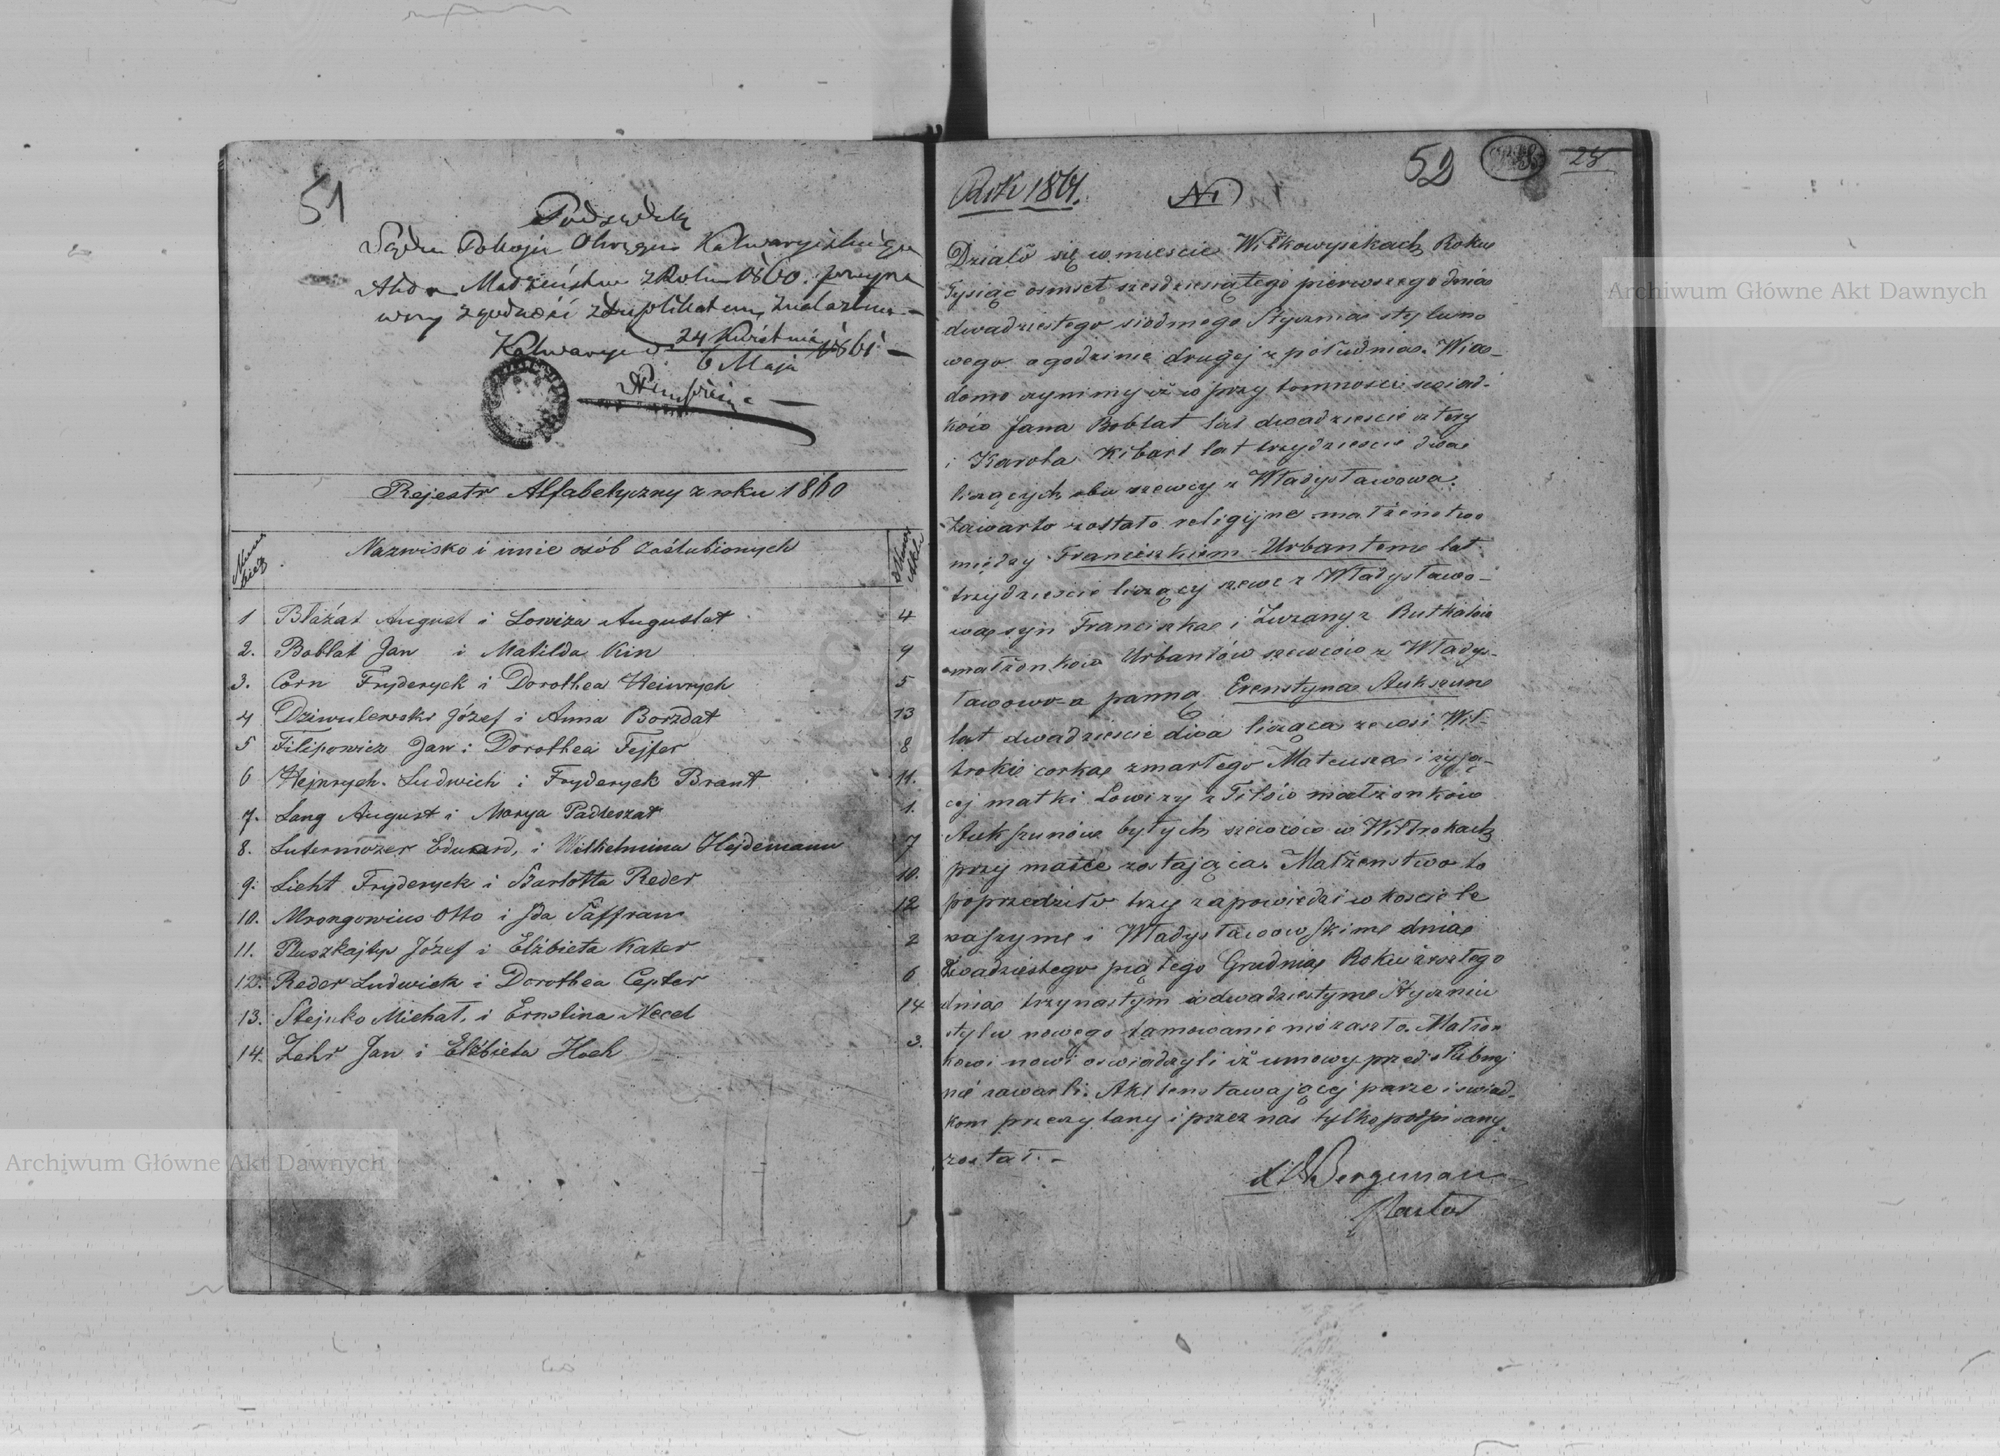 51
Podsędek
Sądu Pokoju Okręgu Kalwaryjskiego
Akta Małżeństw z Roku 1860.
zgodność z duplikatem
Kalwarya d. 24 Kwietnia / 6 Maja 1861
Rejestr Alfabetyczny z roku 1860
Nazwisko i imie osób zaślubionych
1 Błażat August i Lowiza Augustat 4
2. Boblat Jan i Matilda Kin 9
3. Corn Fryderyck i Dorothea Heinrych 5
4 Dziwulewski Józef i Anna Borzdat 13
5 Filipowicz Jan i Dorothea Fejfer 8
6 Hejnrych Ludwich i Fryderyck Brant 11.
7. Lang August i Marya Padleszat 1.
8. Lutermozer Eduard, i Wilhelmina Hejdemann 7
9. Licht Fryderyck i Szarlotta Reder 10.
10. Mrongowius Otto i Ida Saffran 12
11. Puszkajtys Józef i Elżbieta Kater 2
12. Reder Ludwick i Dorothea Cepter 6
13. Stejnko Michał. i Ernstina Necel 14
14. Zehr Jan i Elżbieta Hoch 3.
52
28
Rok 1861. N 1
Działo się w mieście Wiłkowyszkach Roku
Tysiąc osmset sześdziesiątego pierwszego dnia
dwadziestego siodmego Stycznia stylu no
wego o godzinie drugej z południa. Wia-
domo czynimy iż w przytomności swiad-
ków Jana Boblat lat dwadzieście cztery
i Karola Kibart lat trzydzieście dwa
liczących, obu szewcy z Władysławowa.
Zawarto zostało religijne małżeństwo
między Franciszkiem Urbantem lat
trzydzieście liczący szewc z Władysławo-
wa, syn Franciszka i Zuzany z Butkatów
małżonków Urbantów szewców z Władys-
ławowa a panną Erenstyna Aukszun
lat dwadzieście dwa licząca ze wsi Wił-
trokie corka zmarłego Mateusza i żyją-
cej matki Lowizy z Tilów małżonków
Aukszunów byłych szewców w Wiłtrokach
przy matce zostająca. Małżenstwo to
poprzedziło trzy zapowiedzi w kościele
naszyme i Władysławowskime dnia
dwadziestego piątego Grudnia Roku zeszłego
dnia trzynastym i dwadziestyme Styczniu
stylu nowego tamowanie nie zaszło. Małżon
kowi nowi oswiadzyli iż umowy przedslubnej
nie zawarli. Akt ten stawającej parze i swiad-
kom przeczytany i przez nas tylko podpisany
został. -
Bergmann
Pastor
Archiwum Główne Akt Dawnych
Archiwum Główne Akt Dawnych